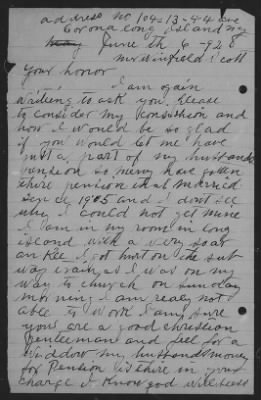 address no 104-13-44 ave
Corona Long Island NY
June th 6-1928
mr Winfield Scott
Your honor
I am again
writing to ask you Please
to consider my Persishion and
how I would be so glad
if you would let me have
Just a part of my husbands
pension so meny have gotten
there pension that married
sence 1905 and I dont see
why I could not get mine
I am in my room in long
island with a very soar
an Kle I got hurt on the sub
way train as I was on my
way to church on sunday
morning I am realy not
able to work I am sure
your are a good christian
Gentleman and feel for a
widdow my husbands money
for Pension is there in your
charge I Know god will bless